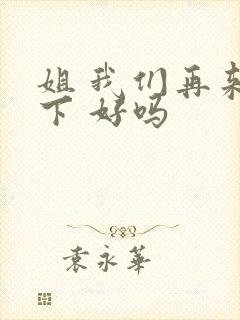 姐我们再来
下好吗
袁永華